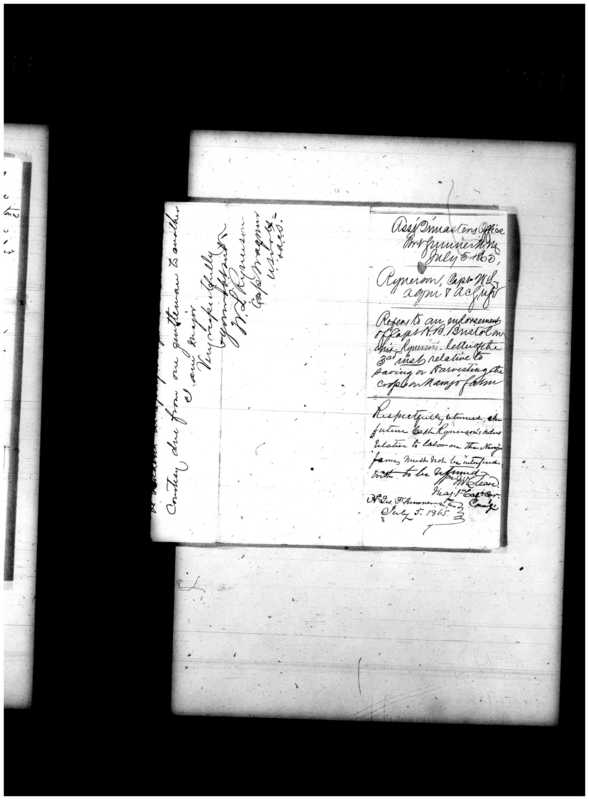 Courtesy due from one gentleman to another
I am, Major
Very respectfully
Your obt svt
W L Rynerson
Capt
Asst Qrmasters Office
Fort Sumner N.M.
July 5 1865,
Rynerson, Capt W. L.
aqm &
Refers to an endorsement
of Capt H. B. Bristol on
Rynerson's letter of the
3rd inst relative to
saving or Harvesting the
crops on Navajo farm
Respectfully returned, in
future Capt Rynerson's
relative to labor on the Navajo
farm, must not be interfered
with
McCleave
Maj 1st Cav. Cal
Comdg
Hd Qrs Ft Sumner N.M.
July 5. 1865